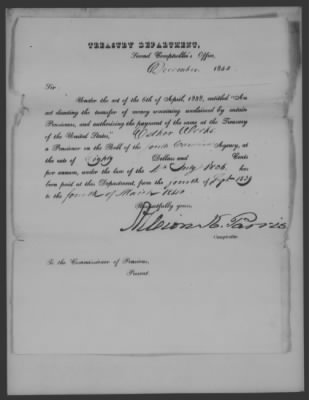 TREASURY DEPARTMENT,
Second Comptroller's Office,
December 1840
Sir
Under the act of the 6th of April, 1838, entitled "An
act directing the transfer of money remaining unclaimed by certain
Pensioners, and authorizing the payment of the same at the Treasury
of the United States,"
a Pensioner on the Roll of the Agency, at
the rate of Eighty Dollars and Cents
per annum, under the law of the 4th July 1836, has
been paid at this Department, from the fourth of Sept 1839
to the fourth of March 1840
Respectfully yours,
Albion K. Parris
Comptroller.
To the Commissioner of Pensions,
Present.